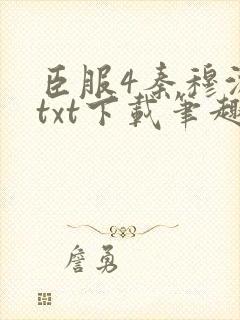 臣服4秦穆
txt下载笔趣
詹勇